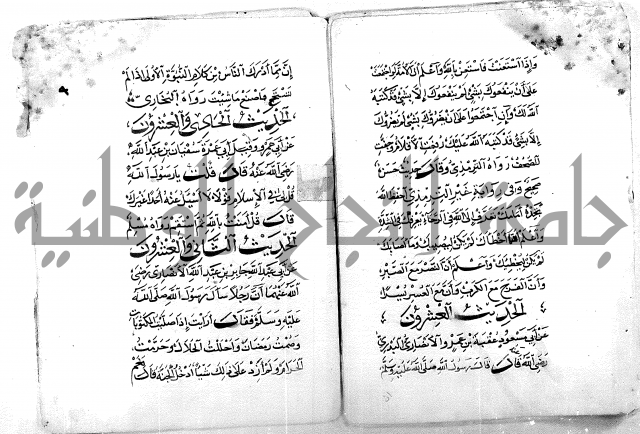 وإذا استعنت فاستعن بالله واعلم أن الأمة لو اجتمعت
على أن ينفعوك بشيء لم ينفعوك إلا بشيء قد كتبه
الله لك وإن اجتمعوا على أن يضروك بشيء لم يضروك
إلا بشيء قد كتبه الله عليك رفعت الأقلام وجفت
الصحف رواه الترمذي وقال حديث حسن
صحيح وفي رواية غير الترمذي احفظ الله
تجده أمامك تعرف إلى الله في الرخاء يعرفك في الشدة
واعلم أن ما أخطأك لم يكن ليصيبك وما أصابك
لم يكن ليخطئك واعلم أن النصر مع الصبر
وأن الفرج مع الكرب وأن مع العسر يسرا
الحديث العشرون
عن أبي مسعود عقبة بن عمرو الأنصاري البدري
رضي الله عنه قال قال رسول الله صلى الله عليه وسلم
إن مما أدرك الناس من كلام النبوة الأولى إذا لم
تستحي فاصنع ما شئت رواه البخاري
الحديث الحادي والعشرون
عن أبي عمرو وقيل أبي عمرة سفيان بن عبد الله
رضي الله عنه قال قلت يا رسول الله
قل لي في الإسلام قولا لا أسأل عنه أحدا غيرك
قال قل آمنت بالله ثم استقم رواه مسلم
الحديث الثاني والعشرون
عن أبي عبد الله جابر بن عبد الله الأنصاري رضي
الله عنهما أن رجلا سأل رسول الله صلى الله
عليه وسلم فقال أرأيت إذا صليت المكتوبات
وصمت رمضان وأحللت الحلال وحرمت
الحرام ولم أزد على ذلك شيئا أدخل الجنة قال نعم
جامعة النجاح الوطنية